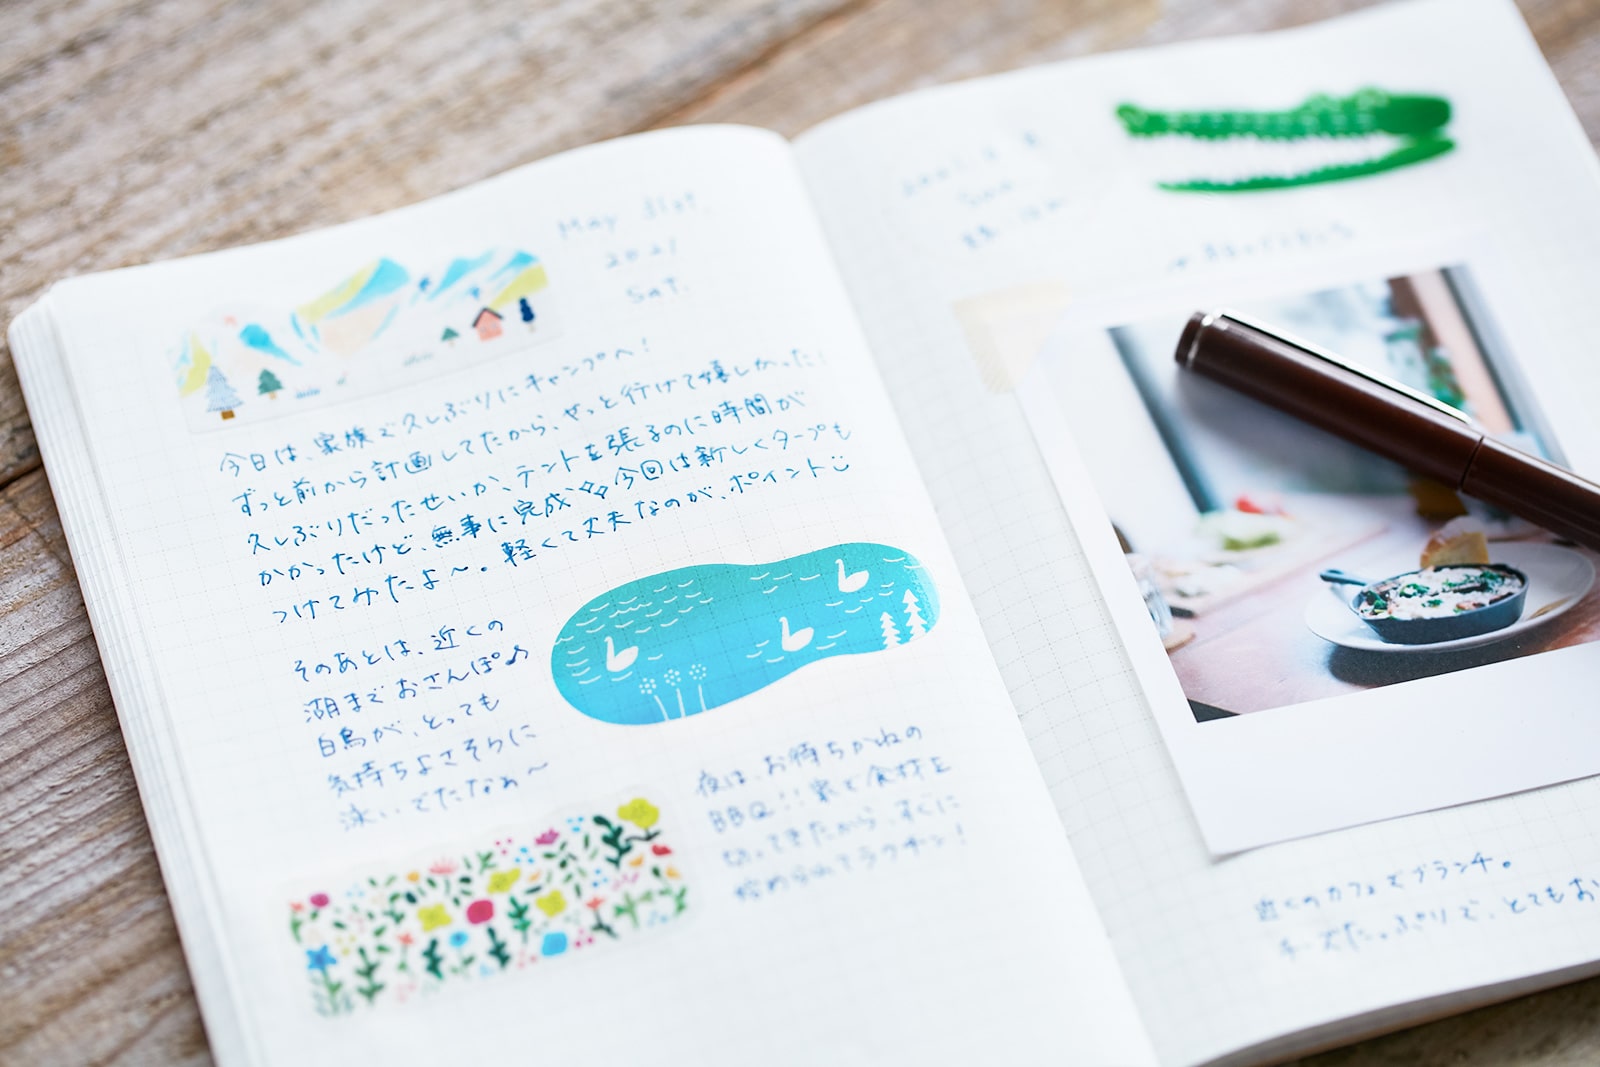 May 31st.
2021
Sat.
今日は、家族で久しぶりにキャンプへ!
ずっと前から計画してたから、やっと行けて嬉しかった!
久しぶりだったせいか、テントを張るのに時間が
かかったけど、無事に完成 今回は新しくタープも
つけてみたよ〜。軽くて丈夫なのが、ポイント
そのあとは、近くの
湖までおさんぽ♪
白鳥が、とっても
気持ちよさそうに
泳いでたなぁ〜
夜は、お待ちかねの
BBQ!!家で食材を
切ってきたから、すぐに
始められてラクチン!
Sun
近くのカフェでブランチ。
チーズたっぷりで、とてもお